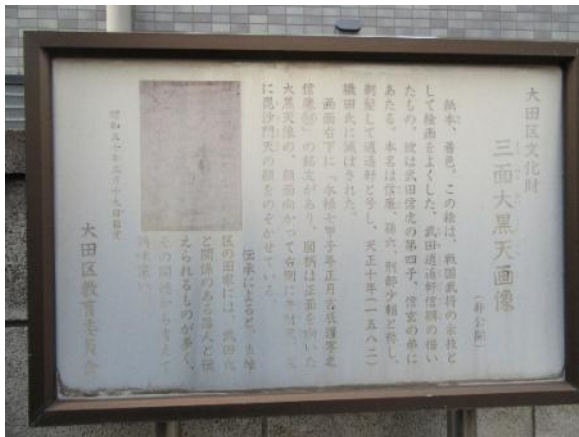 大田区文化財
三面大黒天画像
（非公開）
紙本、着色。この絵は、戦国武将の余技と
して絵画をよくした、武田逍遥軒信綱の描い
たもの。彼は武田信虎の第四子、信玄の弟に
あたる。本名は信廉、孫六、刑部少輔と称し、
剃髪して逍遥軒と号し、天正十年（一五八二）
織田氏に滅ぼされた。
画面右下に「永禄七甲子年正月吉辰謹写之
信廉」の銘文があり、図柄は正面を向いた
大黒天像の、顔面向かって右側に
に毘沙門天の顔をのぞかせている。
伝承によると、当地
区の旧家には、武田氏
と関係のある落人と伝
えられるものが多く、
その関連からも考えて
興味深い。
昭和五十年三月十九日指定
大田区教育委員会